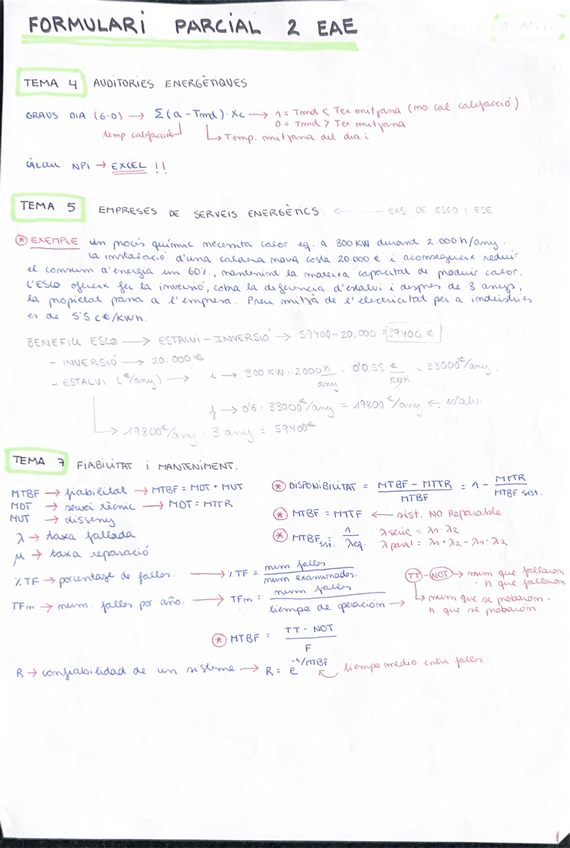 FORMULARI PARCIAL 2 EAE
TEMA 4 AUDITORIES ENERGÈTIQUES
GRAUS DIA (G-D) → Σ(a - Tmd) · Xc → 1 = Tmd < Tex mitjana (no cal calefacció)
0 = Tmd > Tex mitjana
temp calefacció
↳ Temp. mitjana del dia i
CÀLCUL NPI → EXCEL !!
TEMA 5 EMPRESES DE SERVEIS ENERGÈTICS ← EXS DE ESCO i ESE
* EXEMPLE un procés químic necessita calor eq. a 300 KW durant 2.000 h/any.
La instal·lació d'una caldera nova costa 20.000 € i aconsegueix reduir
el consum d'energia un 60%, mantenint la mateixa capacitat de produir calor.
L'ESCO ofereix fer la inversió, cobra la diferència d'estalvi i després de 3 anys,
la propietat passa a l'empresa. Preu mitjà de l'electricitat per a indústries
és de 5'5 c€/KWh.
BENEFICI ESCO → ESTALVI - INVERSIÓ → 59400 - 20.000 = 39400 €
- INVERSIÓ → 20.000 €
- ESTALVI (€/any) → i → 300 KW · 2000 h/any · 0'055 €/KWh = 33000 €/any.
f → 0'6 · 33000 €/any = 19800 €/any ← estalvi
↳ 19800 €/any · 3 any = 59400 €
TEMA 7 FIABILITAT i MANTENIMENT.
MTBF → fiabilitat → MTBF = MOT + MUT
MOT → servei tècnic → MOT = MTTR
MUT → disseny
λ → taxa fallada
μ → taxa reparació
* DISPONIBILITAT = (MTBF - MTTR)/MTBF = 1 - MTTR/MTBF sist.
* MTBF = MTTF ← sist. NO Reparable.
* MTBF sist. = 1/λeq. λ sèrie = λ1 · λ2
λ paral = λ1 + λ2 - λ1 · λ2
% TF → porcentaje de fallos. → % TF = num fallos / num examinados.
TFm → num. fallos por año. → TFm = num fallos / tiempo de operación →
TT - NOT → num que fallaron · h que fallaron
↳ num que se probaron · h que se probaron
* MTBF = (TT - NOT)/F
R → confiabilidad de un sistema → R = e^(-1/MTBF) tiempo medio entre fallos